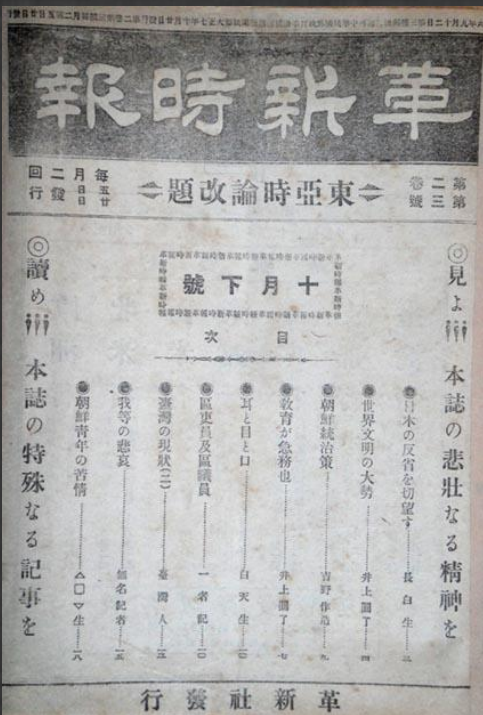 革新時報
第二卷
第三號
東亞時論改題
每月二回
五日廿日發行
◎見よ!!! 本誌の悲壯なる精神を
十月下號
目次
日本の反省を切望す……長白生……二
世界文明の大勢……井上圓了……四
朝鮮統治策……吉野作造……九
教育が急務也……井上圓了……七
耳と目と口……白天生……一〇
區吏員及區議員……一者記……一〇
臺灣の現狀(二)……臺灣人……三
我等の悲哀……無名記者……一五
朝鮮青年の苦情……△□▽生……一八
◎讀め!!! 本誌の特殊なる記事を
革新社發行